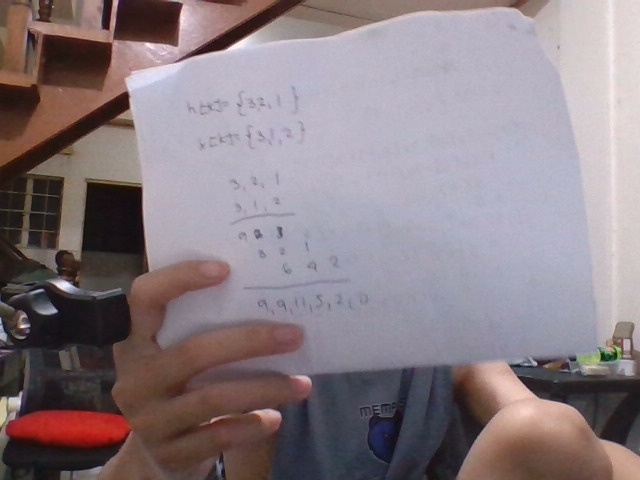 h[k]={3,2,1}
x[k]={3,1,2}
3, 2, 1
3, 1, 2
9 6 3
3 2 1
6 4 2
9,9,11,5,2,0